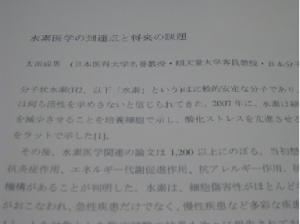 水素医学の到達点と将来の課題
太田成男（日本医科大学名誉教授・順天堂大学客員教授・日本分子
分子状水素(H2、以下「水素」という)は比較的安定な分子であり、
は何ら活性を示さないと信じられてきた。2007年に、水素は
を減少させることを培養細胞で示し、酸化ストレスを
をラットで示した[1]。
その後、水素医学関連の論文は 1,200 以上にのぼる。当初想
抗炎症作用、エネルギー代謝促進作用、抗アレルギー作用、
機構があることが判明した。水素は、細胞傷害性がほとんど
がおこなわれ、急性疾患だけでなく、慢性疾患など多彩な